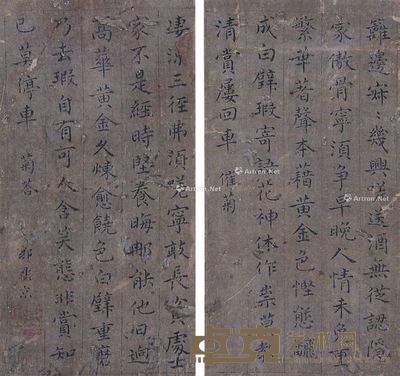 籬邊寂〻幾興嗟送酒無從認隱
家傲骨寧須爭早晚人情未免重
繁華著聲本藉黃金色慳態翻
成白璧瑕寄語花神休作祟莫教
清賞屢回車 催菊
三徑弗須嗟寧敢長貧處士
家不是經時堅養晦那能他日適
高華黃金久煉愈饒色白璧重磨
乃去瑕自有可人含笑態非賞如
已莫停車 菊答
Artron.Net
Artron.Net